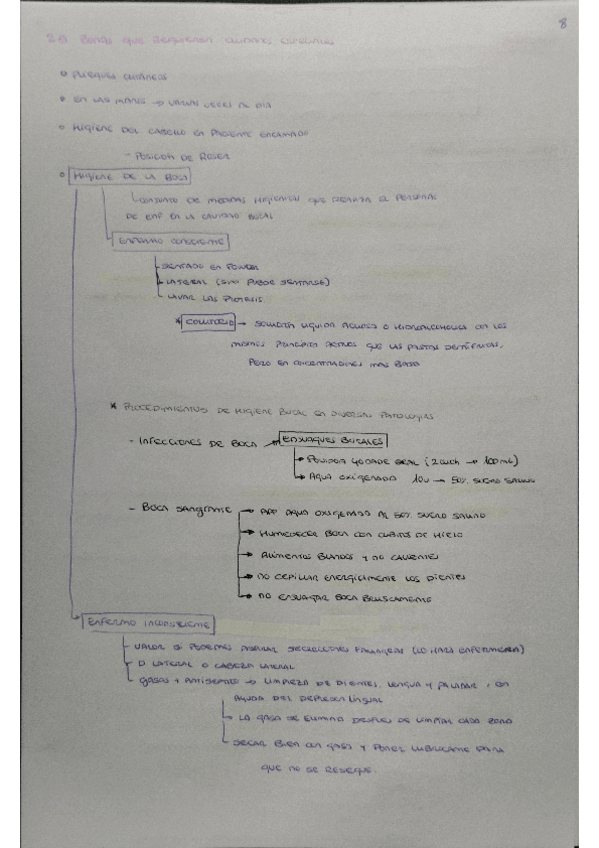 8
2.8 ZONAS QUE REQUIEREN CUIDADOS ESPECÍFICOS
PLIEGUES CUTÁNEOS
EN LAS MANOS → VARIAS VECES AL DÍA
HIGIENE DEL CABELLO EN PACIENTE ENCAMADO
- POSICIÓN DE ROSER
HIGIENE DE LA BOCA
CONJUNTO DE MEDIDAS HIGIÉNICAS QUE REALIZA EL PERSONAL
DE ENF EN LA CAVIDAD BUCAL
ENFERMO CONSCIENTE
SENTADO EN FOWLER
LATERAL (SINO PUEDE SENTARSE)
LAVAR LAS PRÓTESIS
* COLUTORIO → SOLUCIÓN LIQUIDA ACUOSA O HIDROALCOHOLICA CON LOS
MISMOS PRINCIPIOS ACTIVOS QUE LAS PASTAS DENTÍFRICAS,
PERO EN CONCENTRACIONES MÁS BAJAS
* PROCEDIMIENTOS DE HIGIENE BUCAL EN DIVERSAS PATOLOGÍAS
- INFECCIONES DE BOCA → ENJUAGUES BUCALES
→ POVIDONA YODADA ORAL (2 CUCH → 100ML)
→ AGUA OXIGENADA 10V → 50% SUERO SALINO
- BOCA SANGRANTE → APP AGUA OXIGENADA AL 50% SUERO SALINO
→ HUMEDECER BOCA CON CUBITOS DE HIELO
→ ALIMENTOS BLANDOS Y NO CALIENTES
→ NO CEPILLAR ENERGICAMENTE LOS DIENTES
→ NO ENJUAGAR BOCA BRUSCAMENTE
ENFERMO INCONSCIENTE
VALORAR SI PODEMOS ASPIRAR SECRECIONES FARINGEAS (LO HARÁ ENFERMERA)
D. LATERAL O CABEZA LATERAL
GASAS + ANTISÉPTICO → LIMPIEZA DE DIENTES, LENGUA Y PALADAR, CON
AYUDA DEL DEPRESOR LINGUAL
LA GASA SE ELIMINA DESPUES DE LIMPIAR CADA ZONA
SECAR BIEN CON GASA Y PONER LUBRICANTE PARA
QUE NO SE RESEQUE.